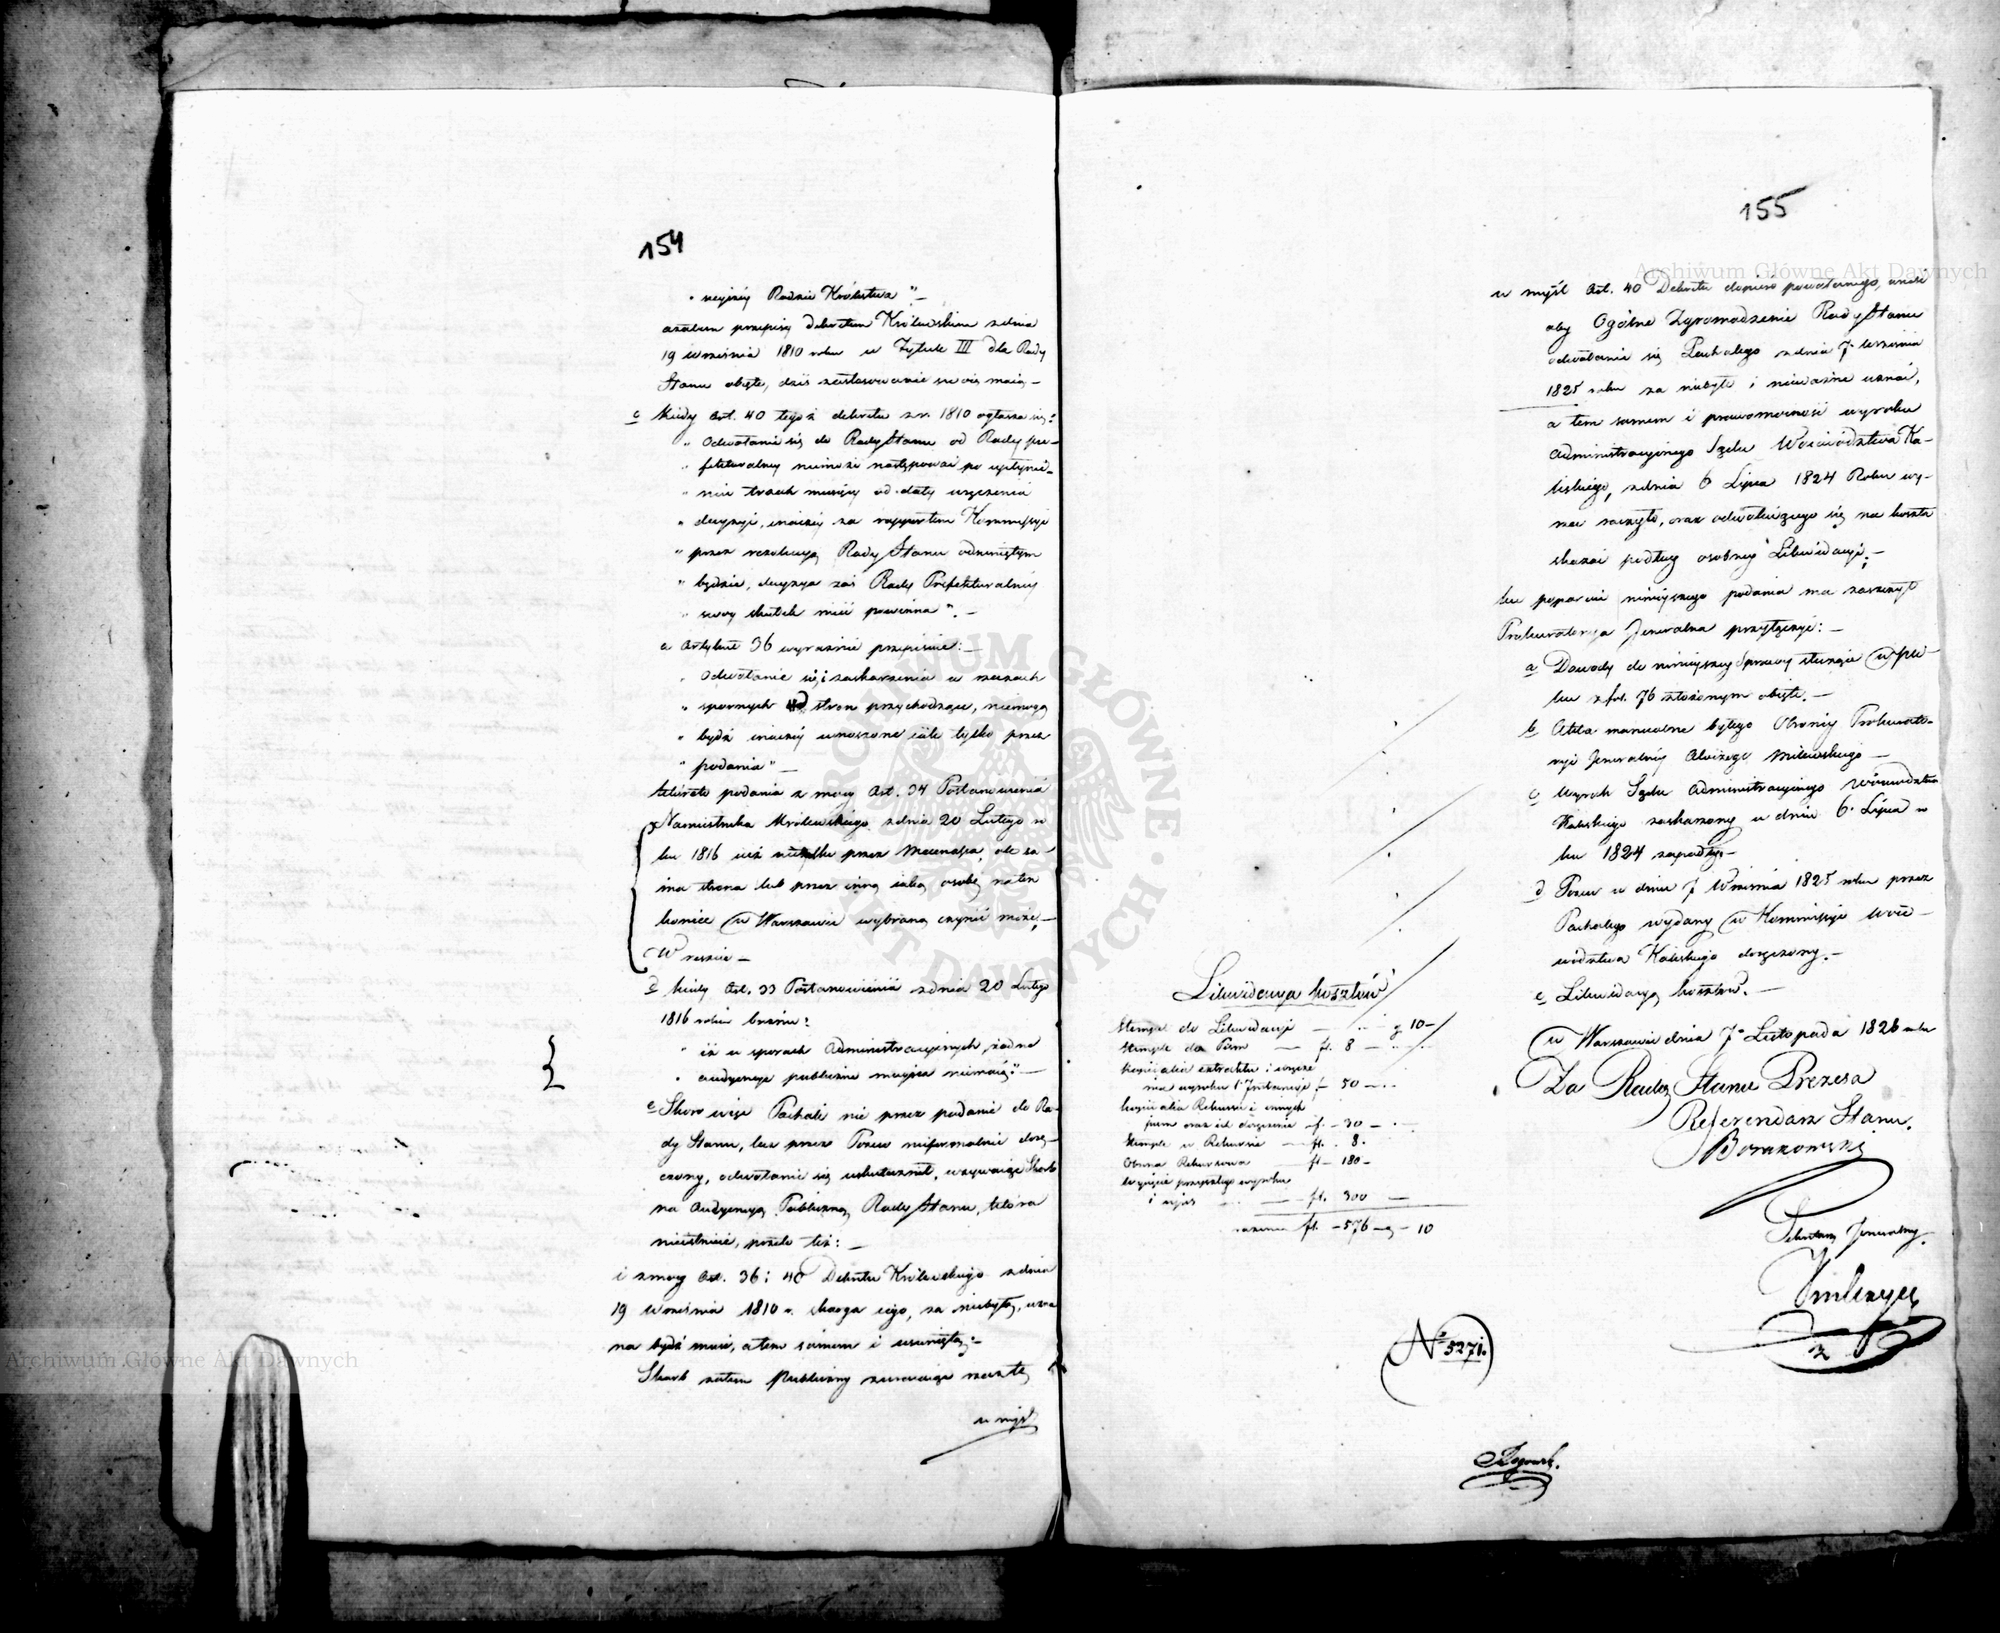 154
„ szejszéy Radzie Królestwa”. —
azatem przepisy dekretem Królewskim z dnia
19 Września 1810 roku w Tytule III dla Rady
Stanu obięte, dziś zastosowanie swoie maią —
c Kiedy Art. 40 tegoż dekretu z r. 1810 ogłasza się:
„ Odwołanie się do Rady Stanu od Rady pre-
„ fekturalney niemoże następować po upłynie-
„ niu trzech miesięcy od daty uręczenia
„ decyzyi, inaczéy za rapportem Kommissyi
„ przez rezolucyą Rady Stanu odrzuconym
„ będzie, decyzya zaś Rady Prefekturalnéy
„ swoy skutek mieć powinna”. —
a Artykuł 36 wyraźnie przepisuie: —
„ Odwołanie się i zaskarżenia w rzeczach
„ spornych od stron przychodzące, niemogą
„ bydź inaczéy wnoszone iak tylko przez
„ podania” —
które to podania z mocy Art. 34 Postanowienia
Namiestnika Królewskiego z dnia 20 Lutego ro-
ku 1816 iuż nietylko przez Mecenasa, ale sa-
ma strona lub przez inną iaką osobę na ten
koniec w Warszawie wybraną czynić może, —
W reszcie —
d Kiedy Art. 33 Postanowienia z dnia 20 Lutego
1816 roku brzmi:
„ iż w sporach Administracyinych, żadne
„ audyencye publiczne mieysca niemaią.” —
e Skoro więc Pachali nie przez podanie do Ra-
dy Stanu, lecz przez Pozew nieformalnie dorę-
czony, odwołanie się uskutecznił, wzywaiąc Skarb
na Audyencyą Publiczną Rady Stanu, która
nieistnieie, przeto też: —
i z mocy Art. 36 i 40 Dekretu Królewskiego z dnia
19 Września 1810 r. skarga iego, za niebyłą, uzna-
na bydź musi, a tem samem i usuniętą; —
Skarb zatem Publiczny zwracaiąc rzecz tę
w myśl
155
w myśl Art. 40 Dekretu dopiero powołanego, wnosi
aby Ogólne Zgromadzenie Rady Stanu
odwołanie się Pachalego z dnia 7 Września
1825 roku za niebyłe i nieważne uznać,
a tem samem i prawomocność wyroku
Administracyinego Sądu Województwa Ka-
liskiego, z dnia 6 Lipca 1824 Roku wy-
rzec raczyło, oraz odwołuiącego się na koszta
skazać podług osobnéy Likwidacyi; —
ku poparciu ninieyszego podania ma zaszczyt
Prokuratorya Jeneralna przyłączyć: —
a Dowody do ninieyszey sprawy służące w pli-
ku z fol. 76 złożonym obięte. —
b Akta manualne byłego Obrońcy Prokurato-
ryi Jeneralnéy Aloizego Milewskiego —
c Wyrok Sądu Administracyinego Województwa
Kaliskiego zaskarżony w dniu 6 Lipca ro-
ku 1824 zapadły. —
d Pozew w dniu 7 Września 1825 roku przez
Pachalego wydany w Kommissyi Woie-
wództwa Kaliskiego doręczony. —
e Likwidacyą kosztów. —
w Warszawie dnia 7º Listopada 1826 roku
Za Radcę Stanu Prezesa
Referendarz Stanu.
Sekretarz Jeneralny.
Likwidacya kosztów
Stempel do Likwidacyi — g 10 —
Stemple do Pism — fl. 8 —
wyroku — 50 —
pism oraz ich doręczenie — f. — 30 —
Stemple w Rekursie — fl. 8.
Obrona Rekursowa fl — 180 —
i wpis — fl. 300 —
razem fl. — 576 — g — 10
Nº 5271.
Archiwum Główne Akt Dawnych
Archiwum Główne Akt Dawnych
ARCHIWUM GŁÓWNE AKT DAWNYCH